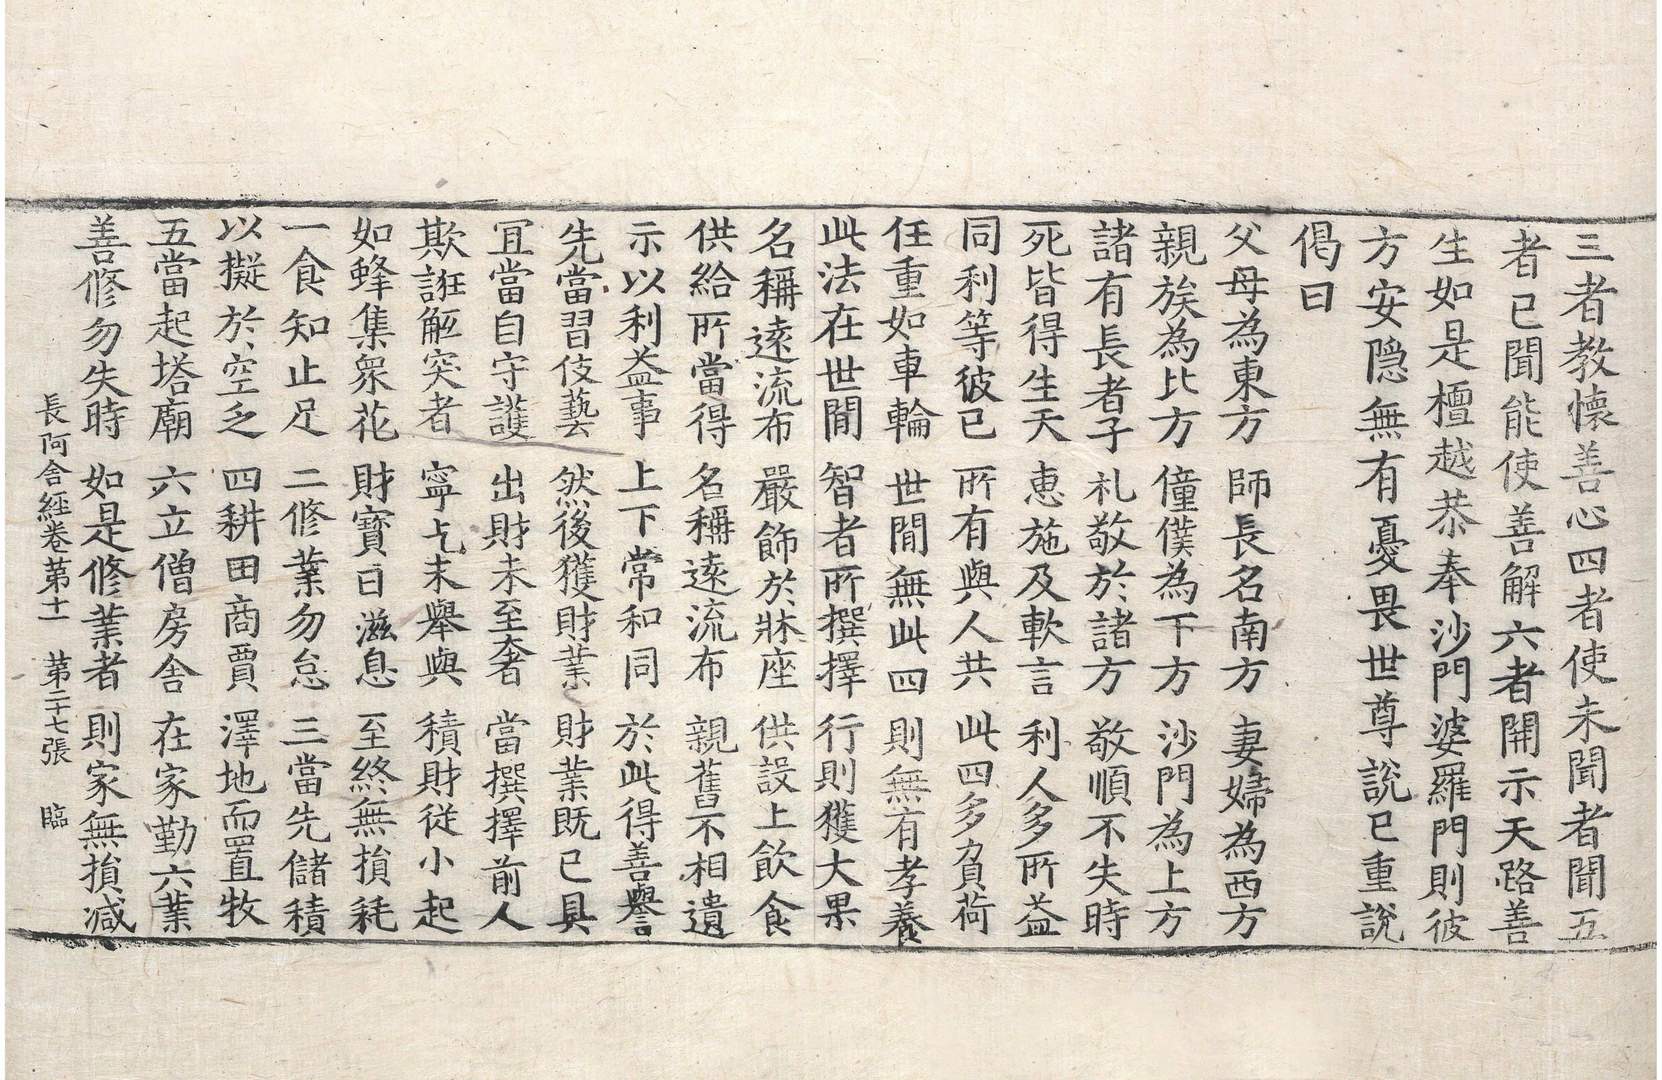 三者教懷善心四者使未聞者聞五
者已聞能使善解六者開示天路善
生如是檀越恭奉沙門婆羅門則彼
方安隱無有憂畏世尊說已重說
偈曰
父母為東方 師長名南方 妻婦為西方
親族為北方 僮僕為下方 沙門為上方
諸有長者子 礼敬於諸方 敬順不失時
死皆得生天 惠施及軟言 利人多所益
同利等彼已 所有與人共 此四多負荷
任重如車輪 世間無此四 則無有孝養
此法在世間 智者所撰擇 行則獲大果
名稱遠流布 嚴飾於牀座 供設上飲食
供給所當得 名稱遠流布 親舊不相遺
示以利益事 上下常和同 於此得善譽
先當習伎藝 然後獲財業 財業既已具
冝當自守護 出財未至奢 當撰擇前人
欺誑觝突者 寧乞未舉與 積財從小起
如蜂集衆花 財寶日滋息 至終無損耗
一食知止足 二修業勿怠 三當先儲積
以擬於空乏 四耕田商賈 澤地而置牧
五當起塔廟 六立僧房舍 在家勤六業
善修勿失時 如是修業者 則家無損減
長阿含經卷第十一 第二十七張 臨